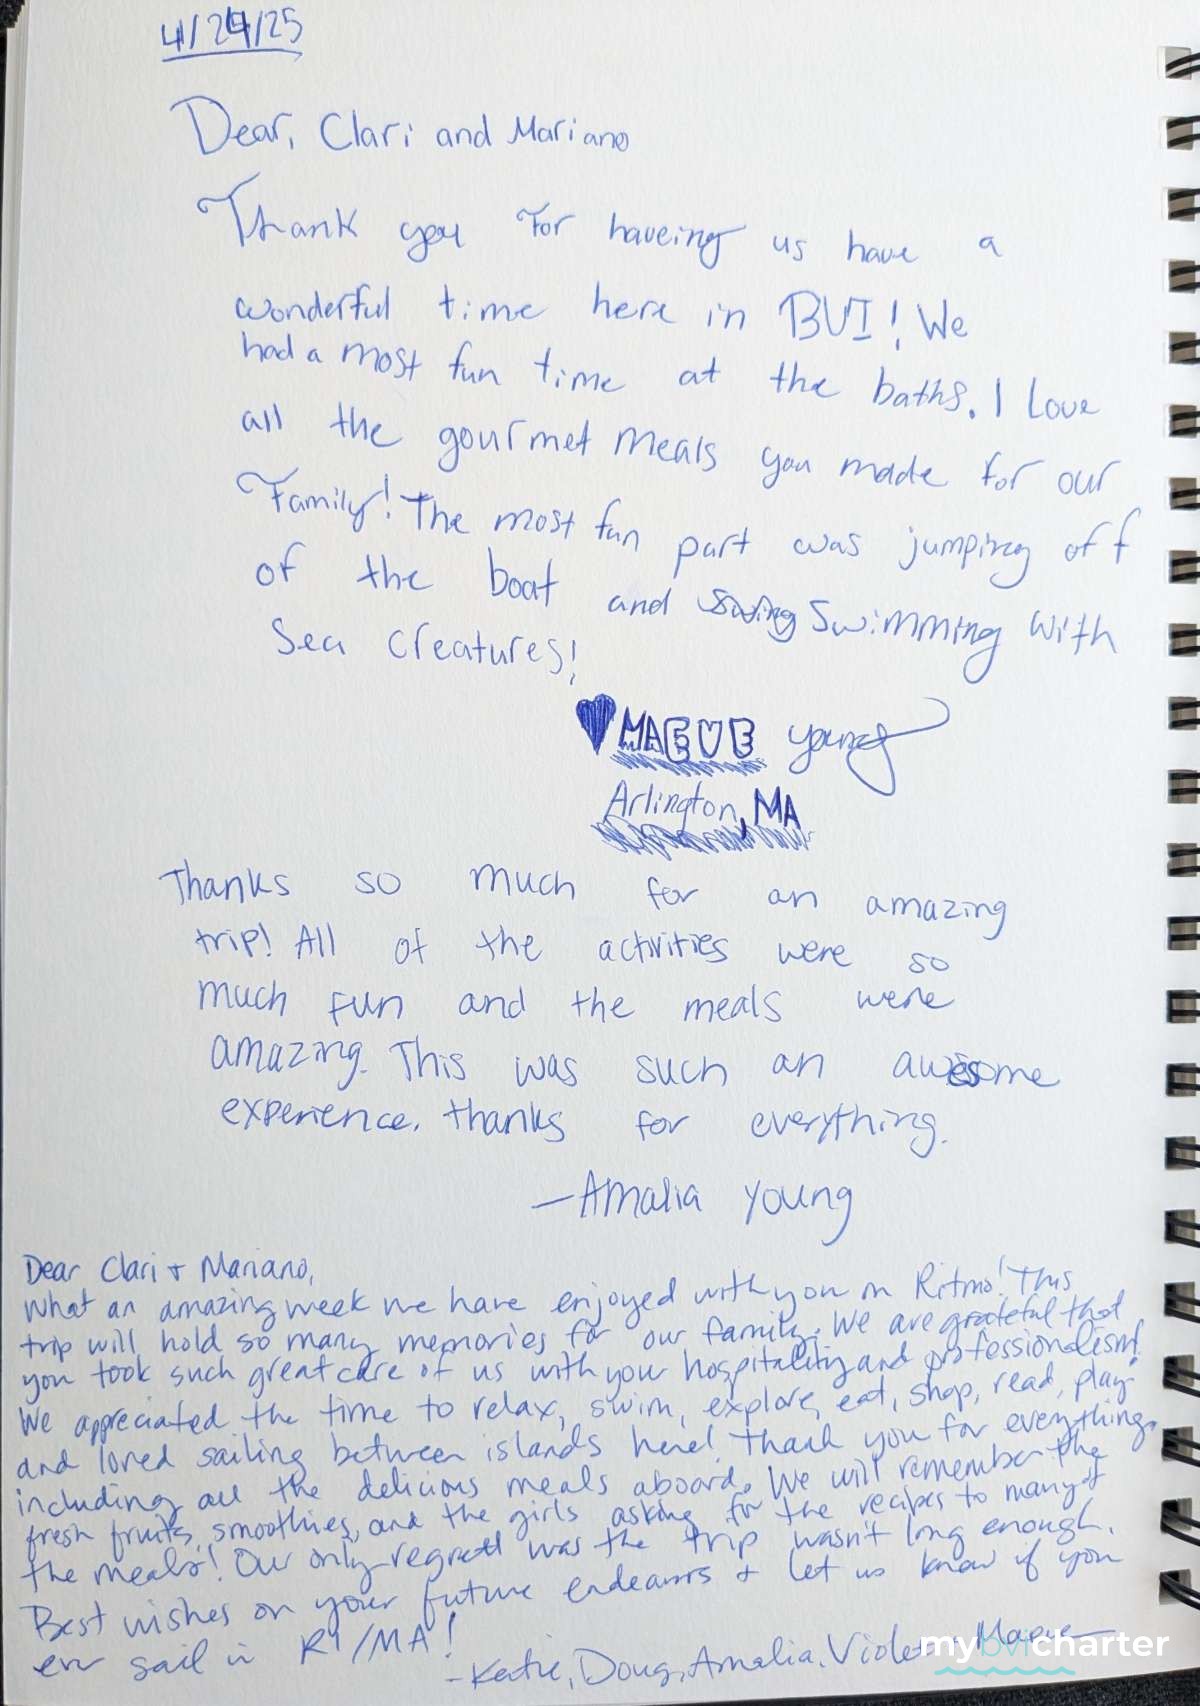 4/24/25
Dear, Clari and Mariano
Thank you For haveing us have a
wonderful time here in BVI! We
had a most fun time at the baths. I Love
all the gourmet meals you made for our
Family! The most fun part was jumping off
of the boat and Swimming with
Sea Creatures!
MAEVE young
Arlington, MA
Thanks so much for an amazing
trip! All of the activities were so
much fun and the meals were
amazing. This was such an awesome
experience. Thanks for everything.
—Amalia Young
Dear Clari + Mariano,
What an amazing week we have enjoyed with you on Ritmo! This
trip will hold so many memories for our family. We are grateful that
you took such great care of us with your hospitality and professionalism!
We appreciated the time to relax, swim, explore, eat, shop, read, play
and loved sailing between islands here! Thank you for everything,
including all the delicious meals aboard. We will remember the
fresh fruits, smoothies, and the girls asking for the recipes to many of
the meals! Our only regrett was the trip wasn't long enough.
Best wishes on your future endeavors + let us know if you
ever sail in RI/MA!
-Katie, Doug, Amalia, Violet + Maeve
mybvicharter